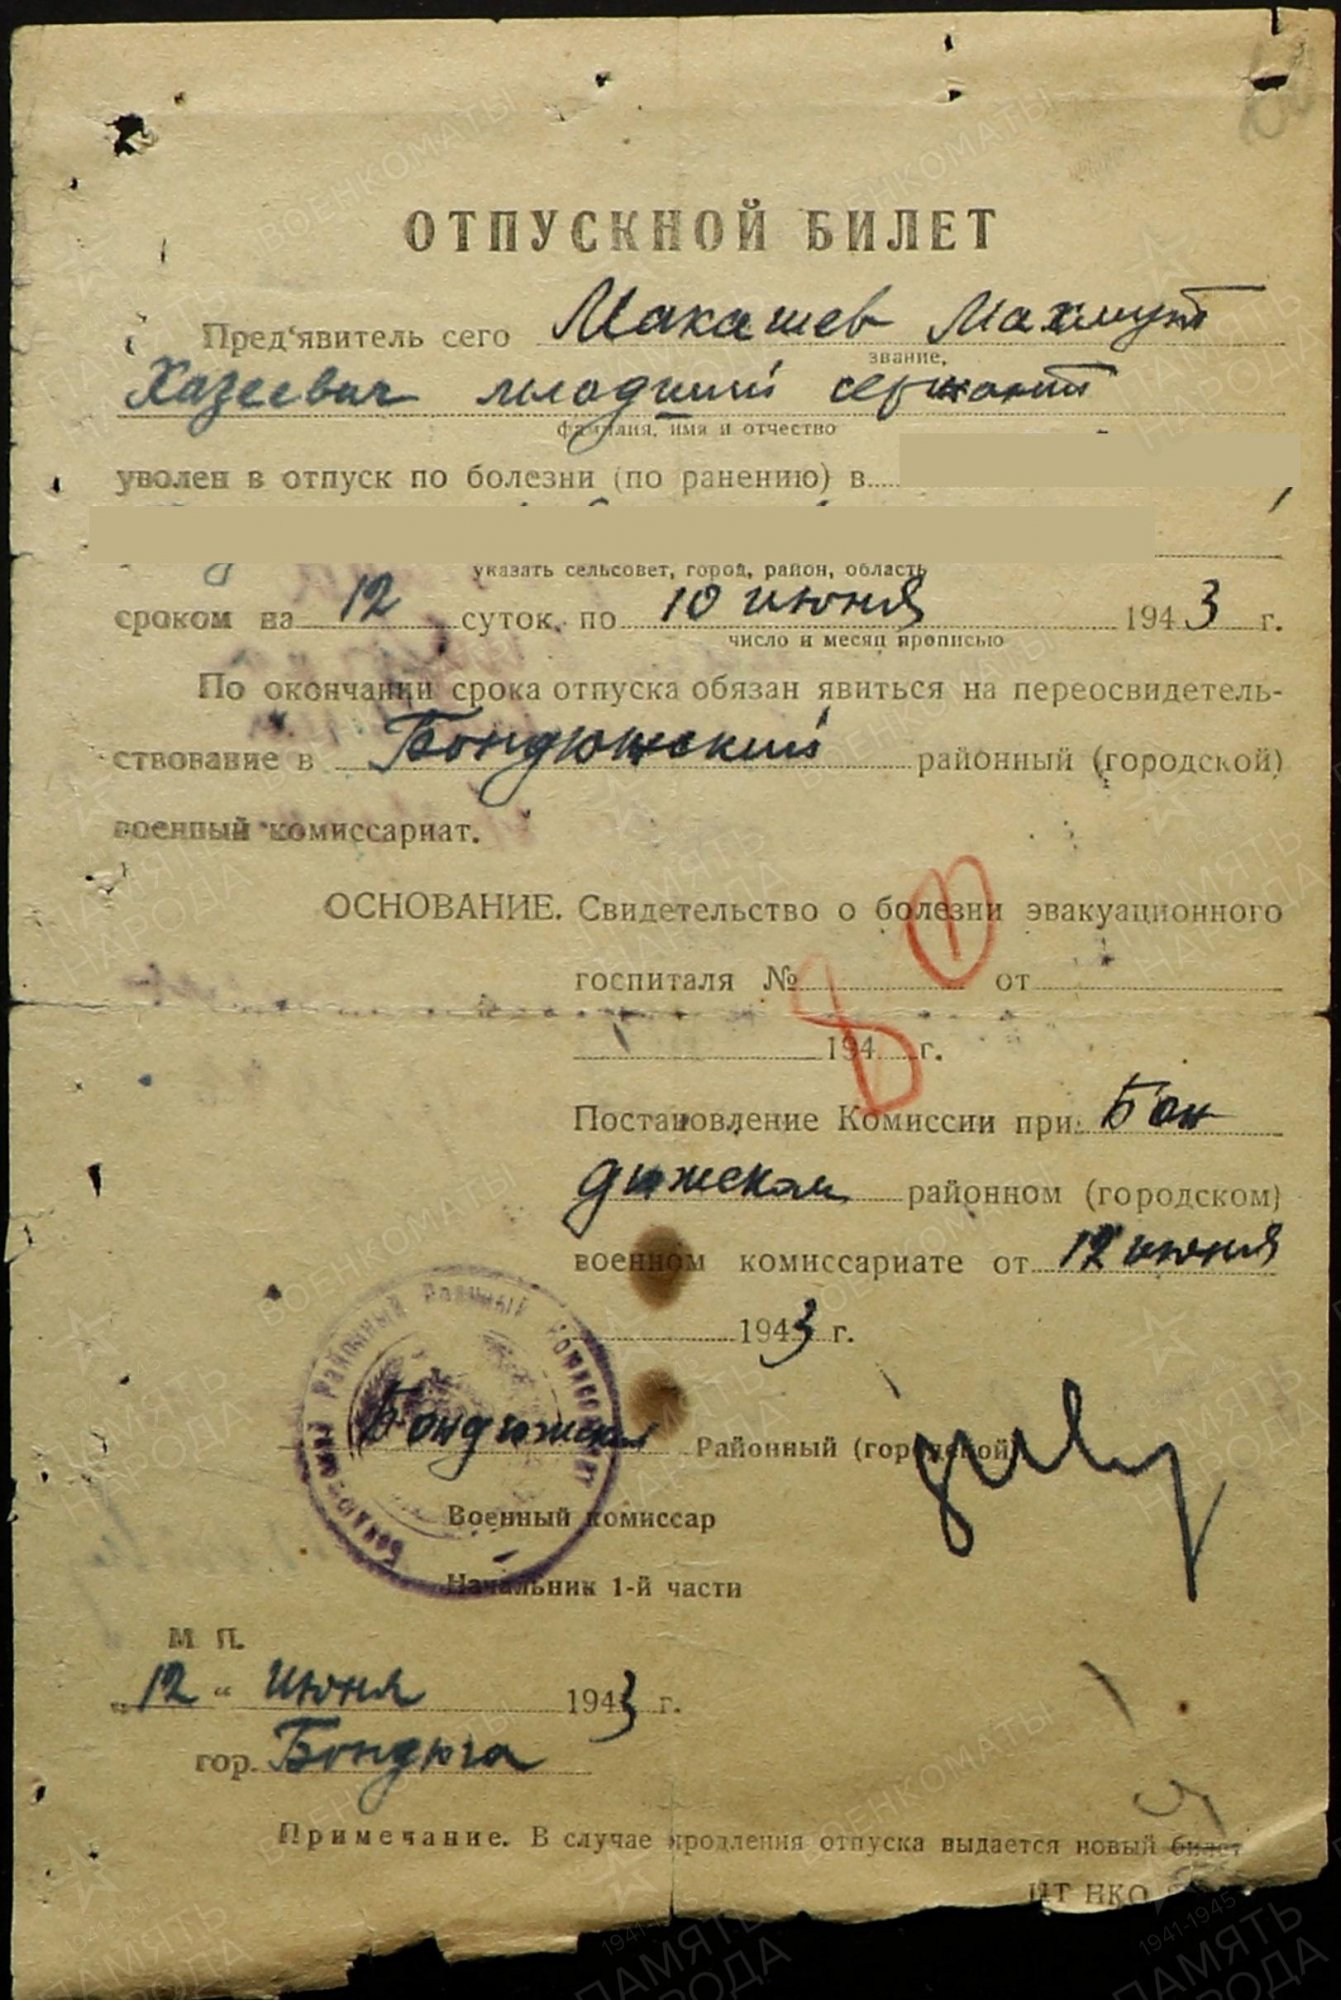 ОТПУСКНОЙ БИЛЕТ
Пред'явитель сего Макашев Махмут
звание,
Хазеевич младший сержант
фамилия, имя и отчество
уволен в отпуск по болезни (по ранению) в
указать сельсовет, город, район, область
сроком на 12 суток, по 10 июня 1943 г.
число и месяц прописью
По окончании срока отпуска обязан явиться на переосвидетель-
ствование в Бондюжский районный (городской)
военный комиссариат.
ОСНОВАНИЕ. Свидетельство о болезни эвакуационного
госпиталя № от
194 г.
8 1
Постановление Комиссии при Бон
дюжском районном (городском)
военном комиссариате от 12 июня
1943 г.
Бондюжский Районный (городской)
Военный комиссар
Начальник 1-й части
Бондюжский Районный Военный Комиссариат
М П.
„12“ июня 1943 г.
гор. Бондюга
Примечание. В случае продления отпуска выдается новый билет
ЦТ НКО
ПАМЯТЬ НАРОДА
1941-1945
ВОЕНКОМАТЫ